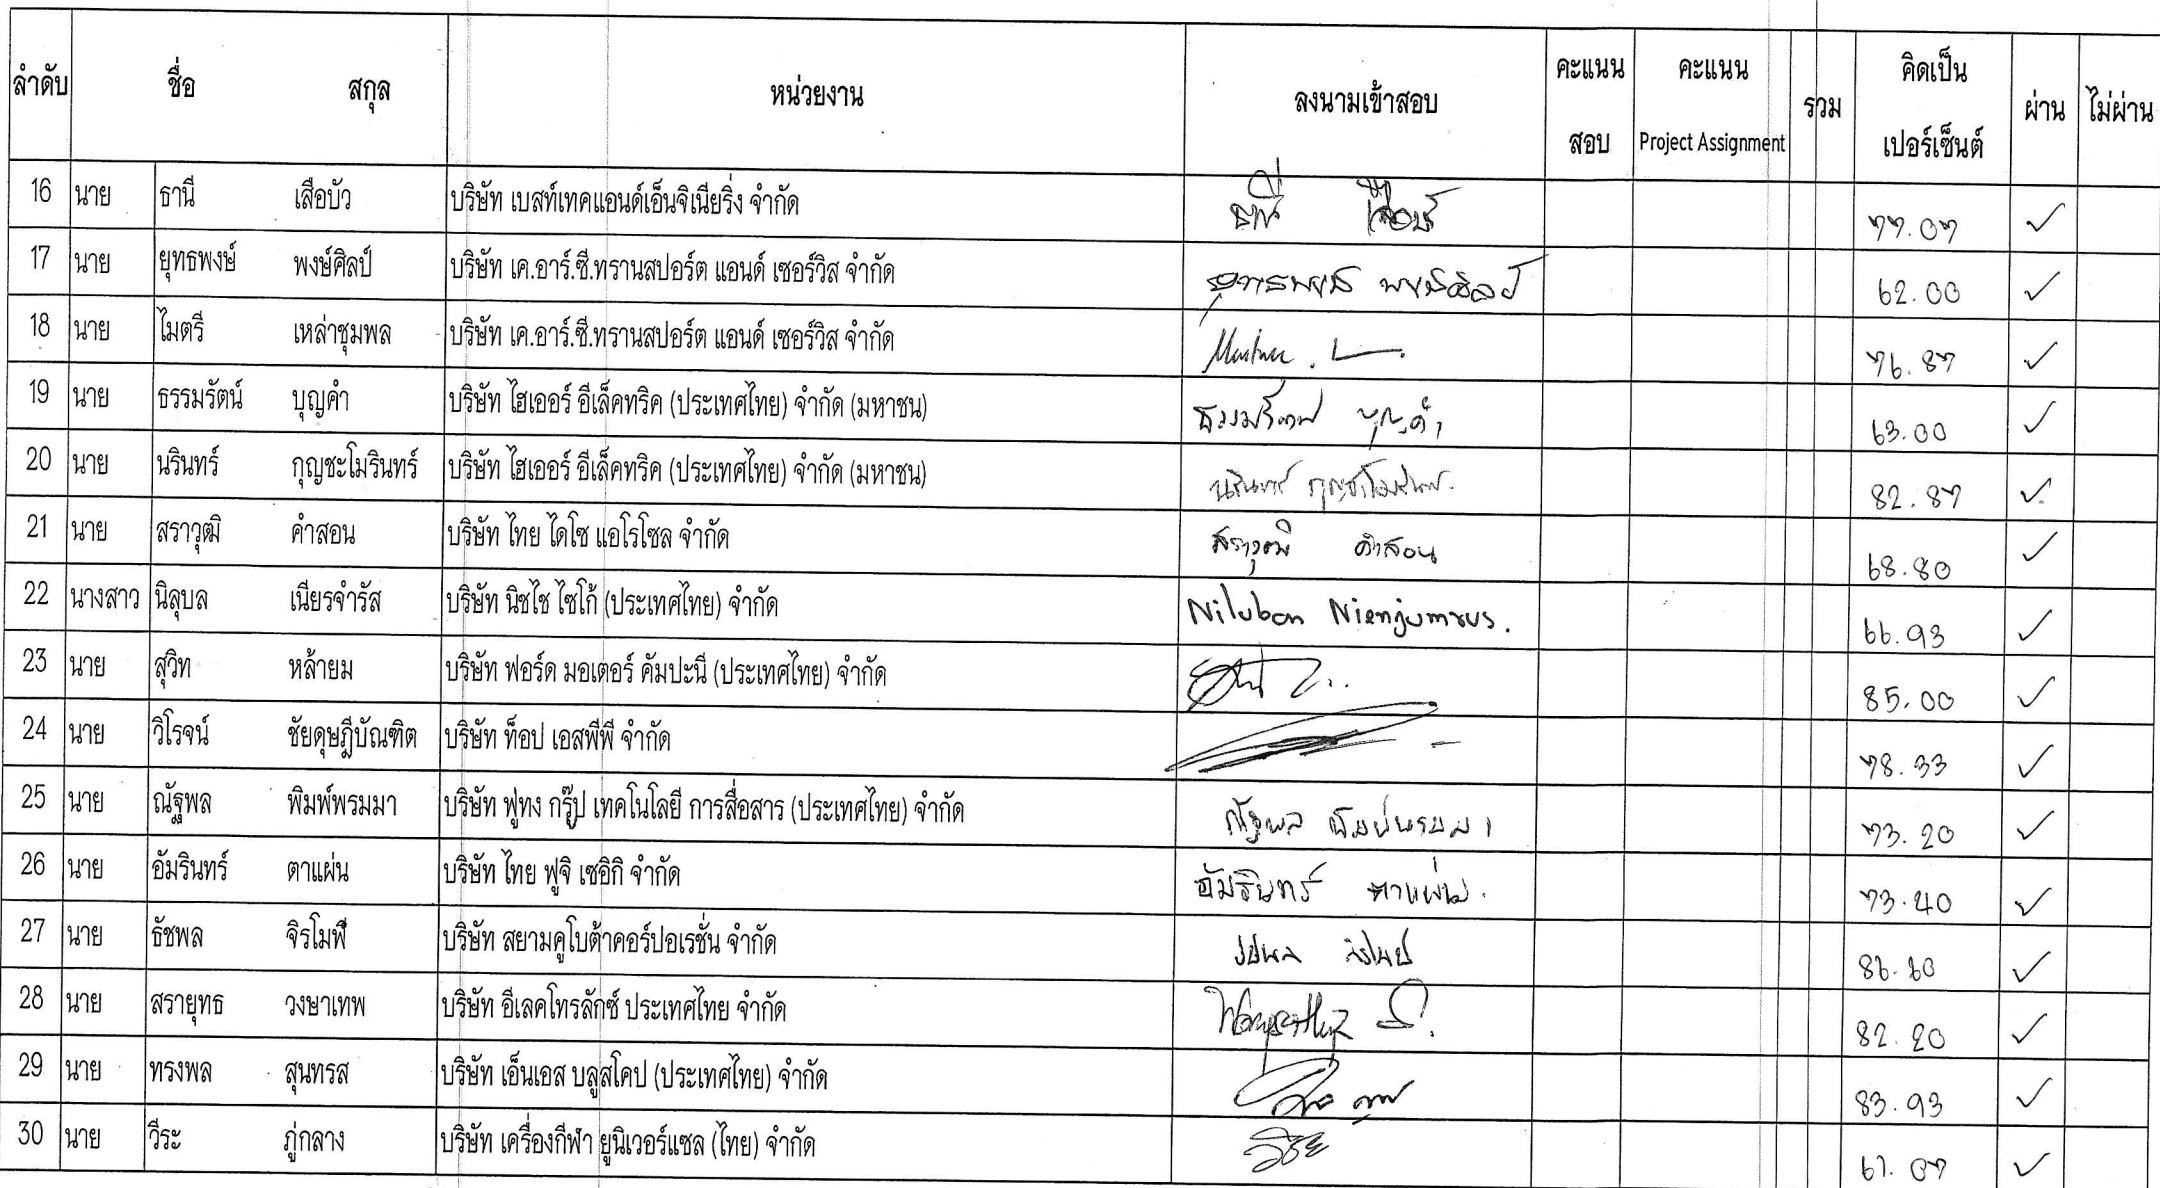 ลำดับ ชื่อ สกุล หน่วยงาน ลงนามเข้าสอบ คะแนน สอบ คะแนน Project Assignment รวม คิดเป็น เปอร์เซ็นต์ ผ่าน ไม่ผ่าน
16 นาย ธานี เสือบัว บริษัท เบสท์เทคแอนด์เอ็นจิเนียริ่ง จำกัด 77.07 ✓
17 นาย ยุทธพงษ์ พงษ์ศิลป์ บริษัท เค.อาร์.ซี.ทรานสปอร์ต แอนด์ เซอร์วิส จำกัด ยุทธพงษ์ พงษ์ศิลป์ 62.00 ✓
18 นาย ไมตรี เหล่าชุมพล บริษัท เค.อาร์.ซี.ทรานสปอร์ต แอนด์ เซอร์วิส จำกัด 76.87 ✓
19 นาย ธรรมรัตน์ บุญคำ บริษัท ไฮเออร์ อีเล็คทริค (ประเทศไทย) จำกัด (มหาชน) ธรรมรัตน์ บุญคำ 63.00 ✓
20 นาย นรินทร์ กุญชะโมรินทร์ บริษัท ไฮเออร์ อีเล็คทริค (ประเทศไทย) จำกัด (มหาชน) นรินทร์ กุญชะโมรินทร์ 82.87 ✓
21 นาย สราวุฒิ คำสอน บริษัท ไทย ไดโซ แอโรโซล จำกัด สราวุฒิ คำสอน 68.80 ✓
22 นางสาว นิลุบล เนียรจำรัส บริษัท นิชไช ไซโก้ (ประเทศไทย) จำกัด Nilubon Nienjumrus. 66.93 ✓
23 นาย สุวิท หล้ายม บริษัท ฟอร์ด มอเตอร์ คัมปะนี (ประเทศไทย) จำกัด 85.00 ✓
24 นาย วิโรจน์ ชัยดุษฎีบัณฑิต บริษัท ท็อป เอสพีพี จำกัด 78.33 ✓
25 นาย ณัฐพล พิมพ์พรมมา บริษัท ฟูทง กรุ๊ป เทคโนโลยี การสื่อสาร (ประเทศไทย) จำกัด ณัฐพล พิมพ์พรมมา 73.20 ✓
26 นาย อัมรินทร์ ตาแผ่น บริษัท ไทย ฟูจิ เซอิกิ จำกัด อัมรินทร์ ตาแผ่น. 73.40 ✓
27 นาย ธัชพล จิรโมฬี บริษัท สยามคูโบต้าคอร์ปอเรชั่น จำกัด 86.60 ✓
28 นาย สรายุทธ วงษาเทพ บริษัท อีเลคโทรลักซ์ ประเทศไทย จำกัด 82.20 ✓
29 นาย ทรงพล สุนทรส บริษัท เอ็นเอส บลูสโคป (ประเทศไทย) จำกัด 83.93 ✓
30 นาย วีระ ภู่กลาง บริษัท เครื่องกีฬา ยูนิเวอร์แซล (ไทย) จำกัด วีระ 61.07 ✓